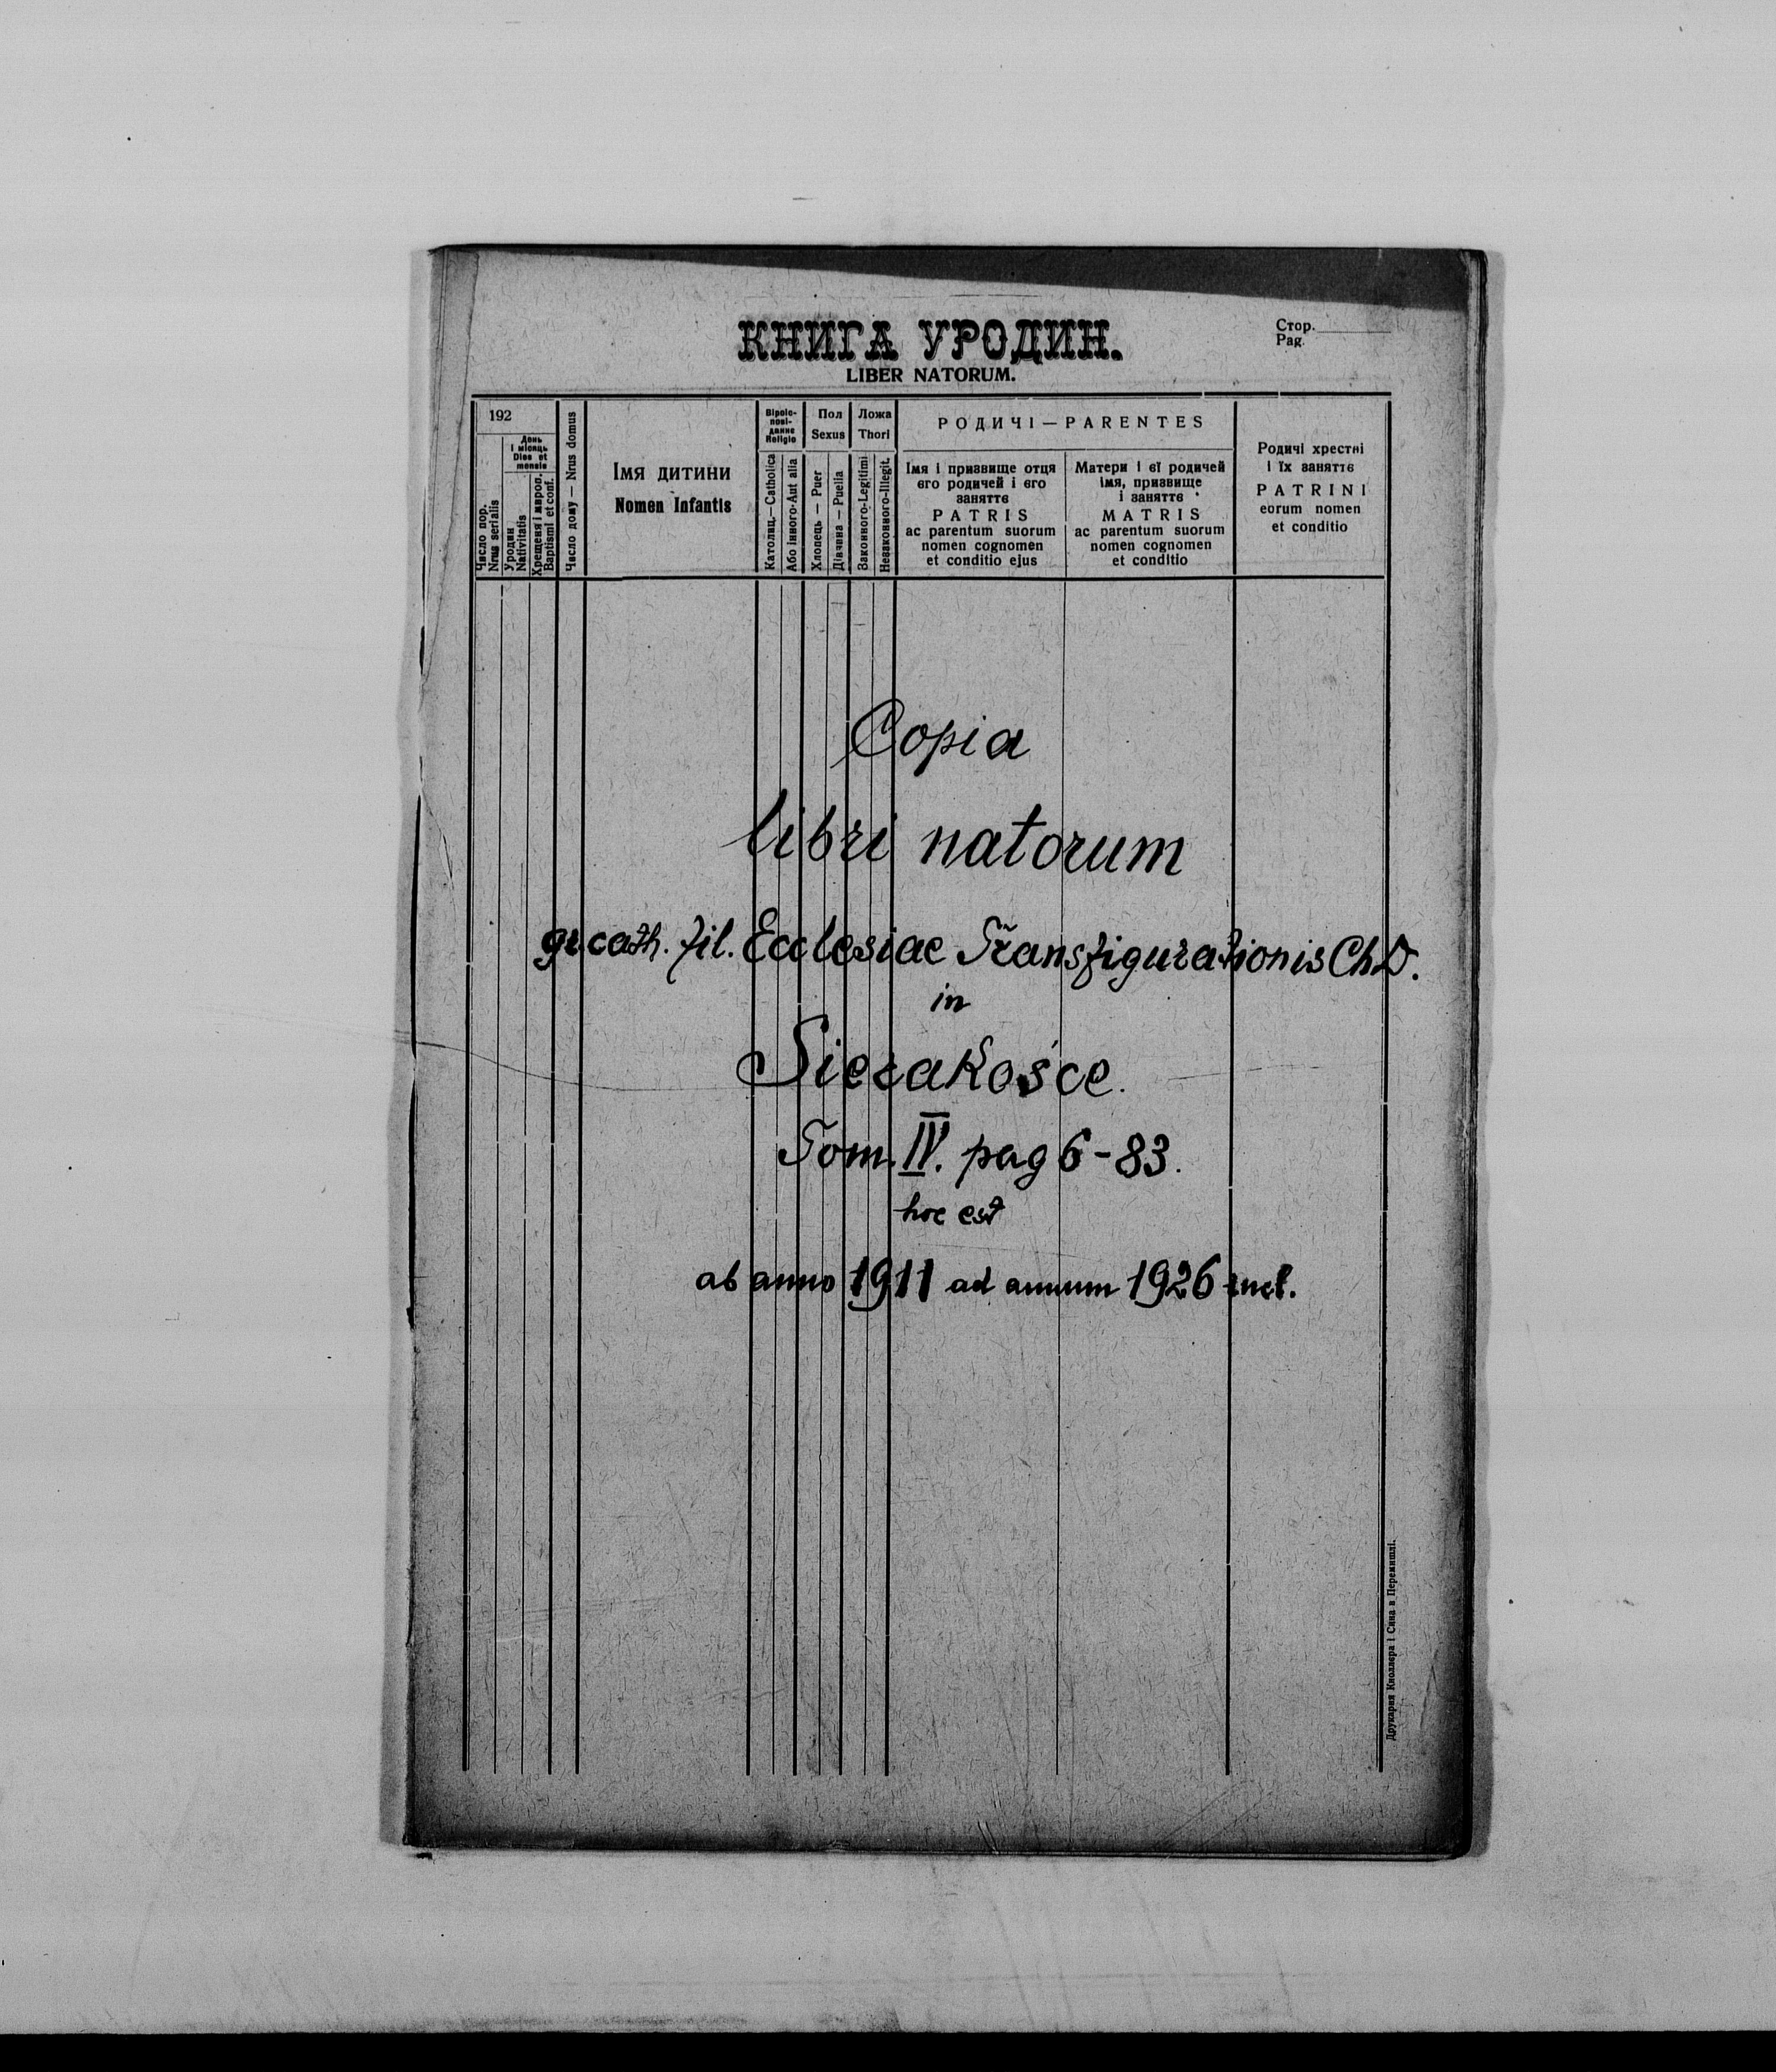 КНИГА УРОДИН.
LIBER NATORUM.
Стор.
Pag.
192
День
і місяць
Dies et
mensis
Число пор.
Nrus serialis
Уродин
Nativitatis
Хрещеня і миров.
Baptismi et conf.
Число дому — Nrus domus
Імя дитини
Nomen Infantis
Віроіс-
пові-
данє
Religio
Католиц.—Catholica
Або інного-Aut alia
Пол
Sexus
Хлопець — Puer
Дівчина — Puella
Ложа
Thori
Законного-Legitimi
Незаконного-Illegit.
РОДИЧІ — PARENTES
Імя і призвище отця
єго родичей і єго
занятє
PATRIS
ac parentum suorum
nomen cognomen
et conditio ejus
Матери і єї родичей
імя, призвище
і занятє
MATRIS
ac parentum suorum
nomen cognomen
et conditio
Родичі хрестні
і їх занятє
PATRINI
eorum nomen
et conditio
Copia
libri natorum
gr. cath. fil. Ecclesiae Transfigurationis Ch. D.
in
Sierakośce.
Tom. IV. pag 6-83.
hoc est
ab anno 1911 ad annum 1926 incl.
Друкарня Кноллєра і Сина в Перемишлі.